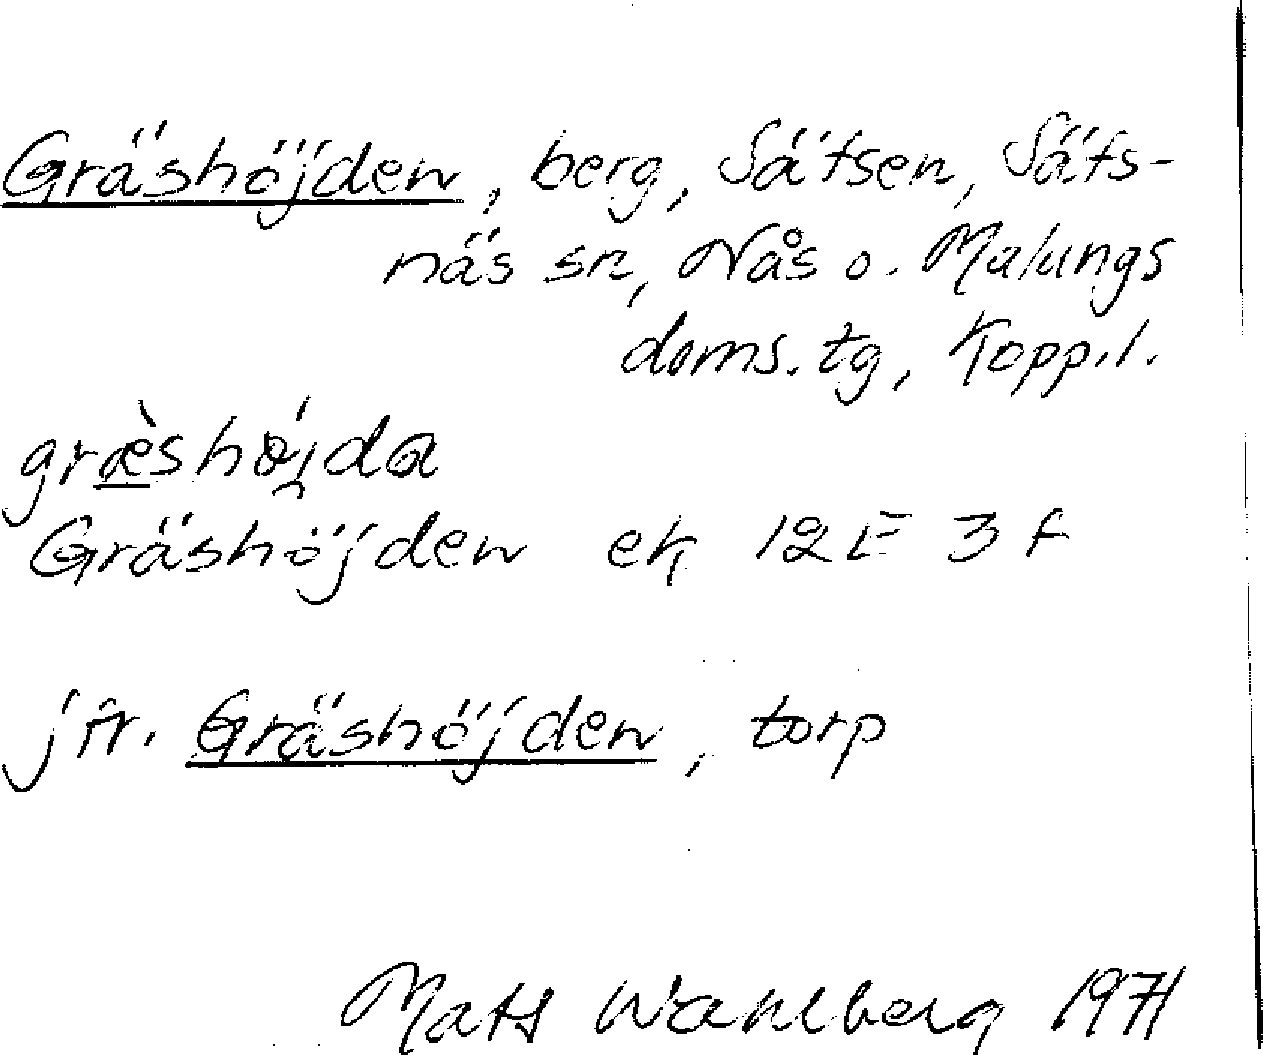 Gräshöjden, berg, Sätsen, Säfs-
näs sn, Nås o. Malungs
doms. tg, Kopp. l.
græ̀shöjda
Gräshöjden ek 12E 3f
jfr. Gräshöjden, torp
Mats Wahlberg 1971